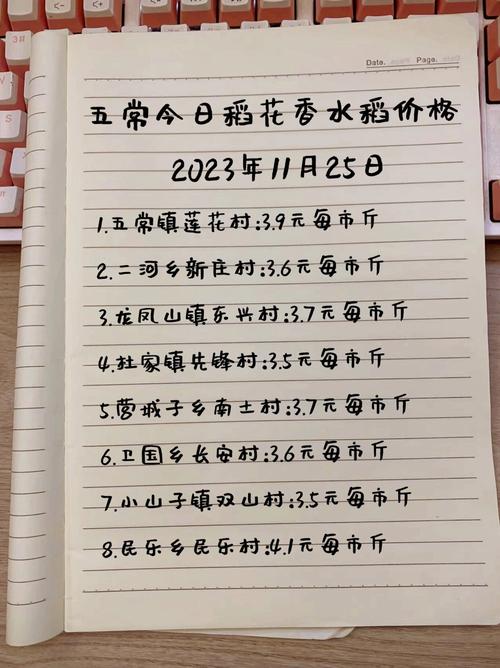 Date. Page.
五常今日稻花香水稻价格
2023年11月25日
1.五常镇莲花村:3.9元每市斤
2.二河乡新庄村:3.6元每市斤
3.龙凤山镇东兴村:3.7元每市斤
4.杜家镇先锋村:3.5元每市斤
5.营城子乡南土村:3.7元每市斤
6.卫国乡长安村:3.6元每市斤
7.小山子镇双山村:3.5元每市斤
8.民乐乡民乐村:4.1元每市斤